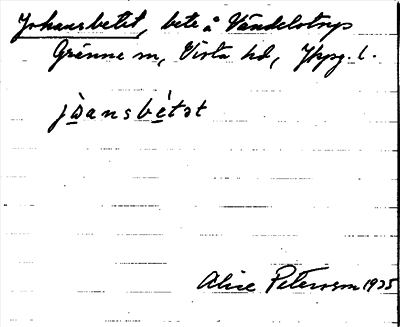 Johansbetet, bete å Vändelstorps
Gränna sn, Vista hd, Jkpg. l.
jòansbétət
Alice Petersson 1935